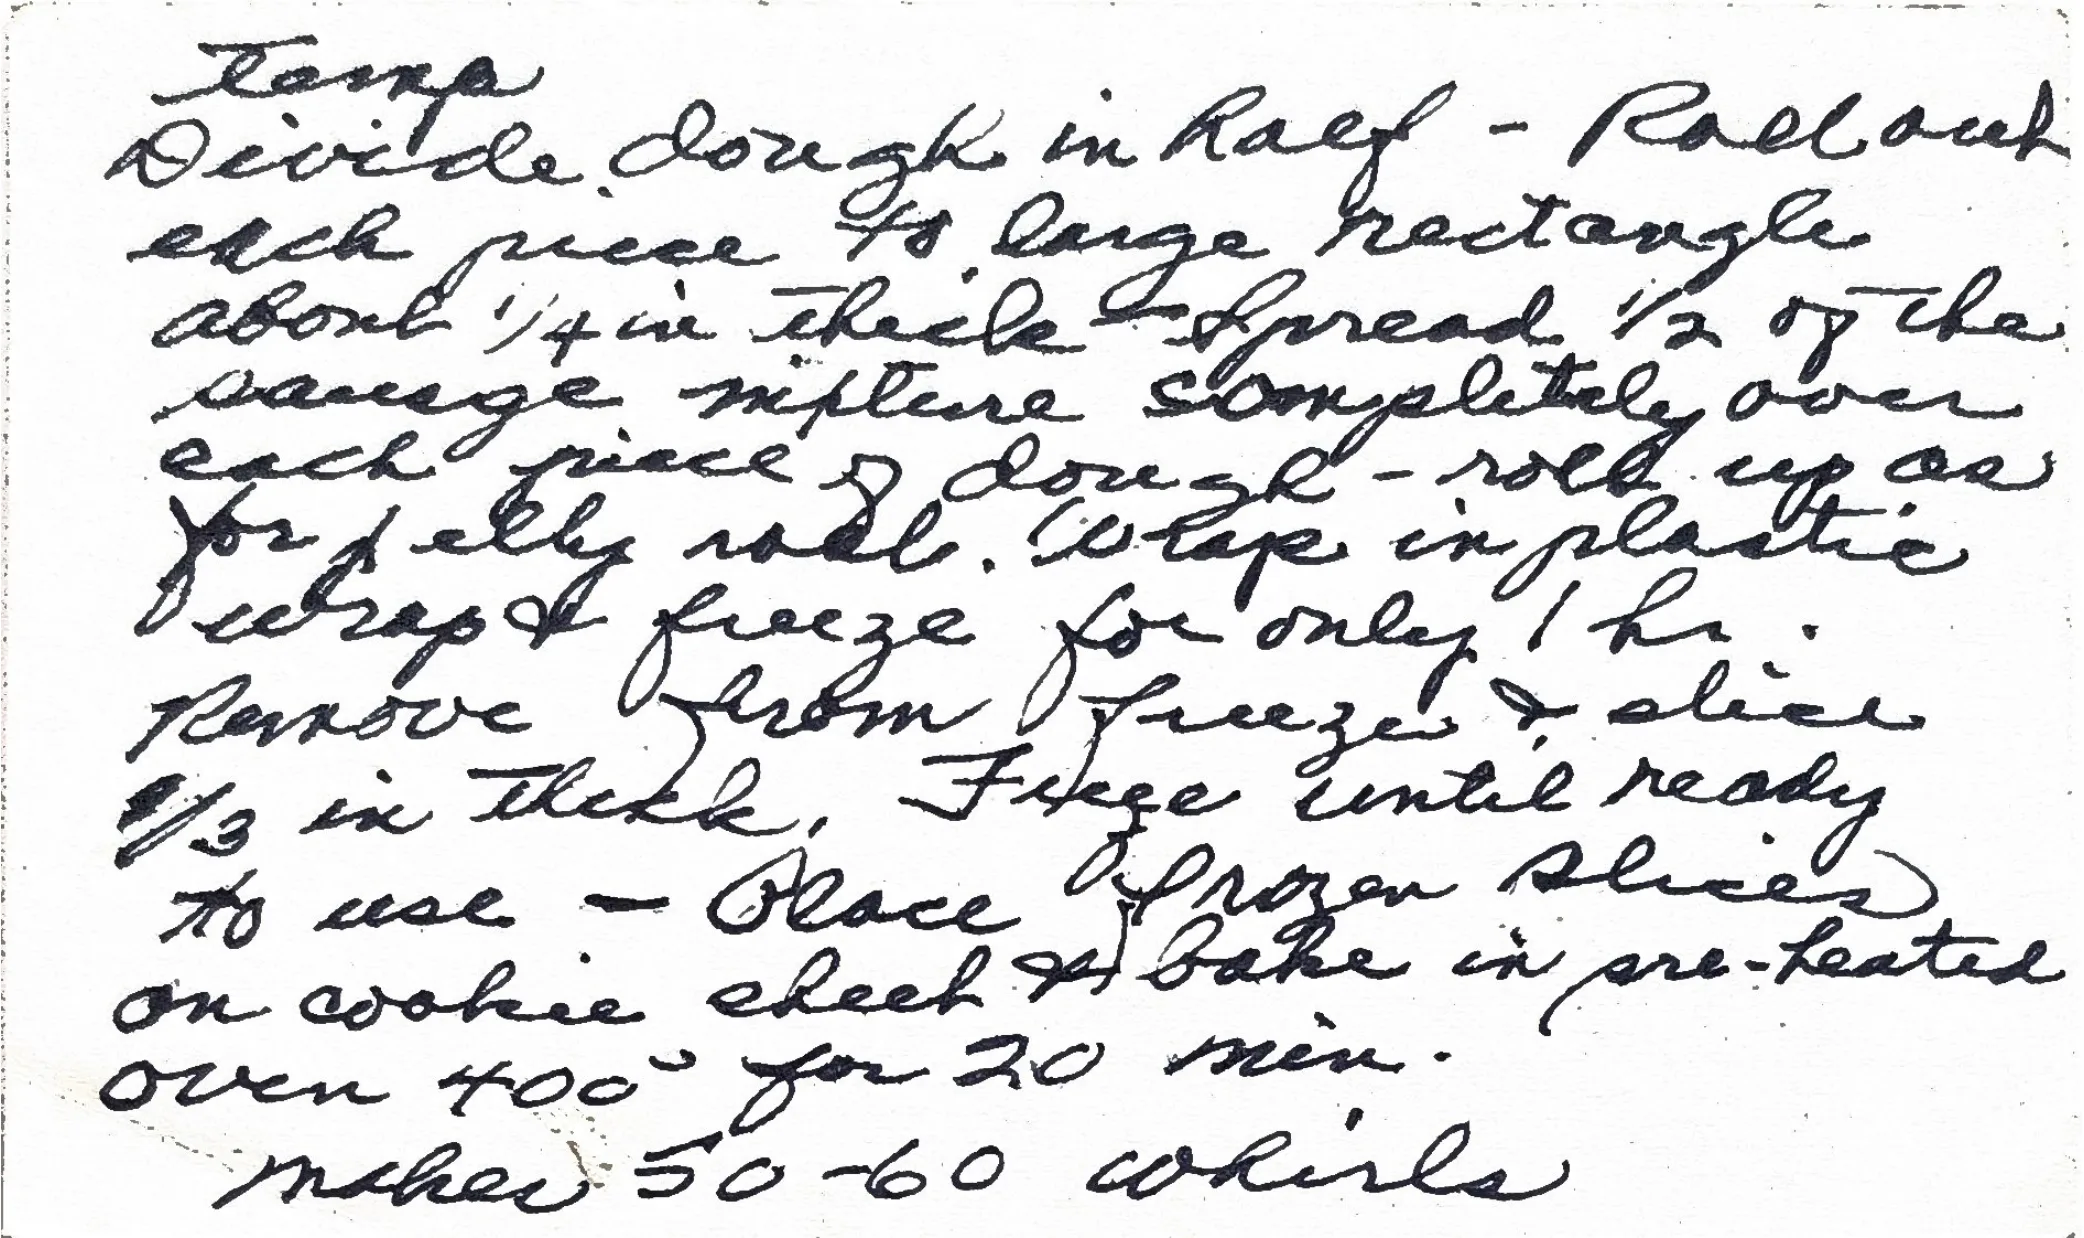 temp
Divide dough in half - Roll out
each piece to large rectangle
about 1/4 in thick - Spread 1/2 of the
sausge mixture completely over
each piece of dough - roll up as
for jelly roll. Wrap in plastic
wrap & freeze for only 1 hr.
Remove from freezer & slice
1/3 in thick. Freeze until ready
to use - Place frozen slices
on cookie sheet & bake in pre-heated
oven 400° for 20 min.
Makes 50-60 whirls